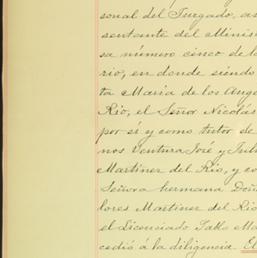 sonal del Juzgado, as
sentante del Minis
sa número cinco de la
rio, en donde siendo
ta María de los Ange
Rio, el Señor Nicolás
por sí y como tutor de
nos Ventura José y Juli
Martinez del Rio, y co
Señora hermana Doña
lores Martinez del Rio
el Licenciado Pablo Ma
cedió á la diligencia. El